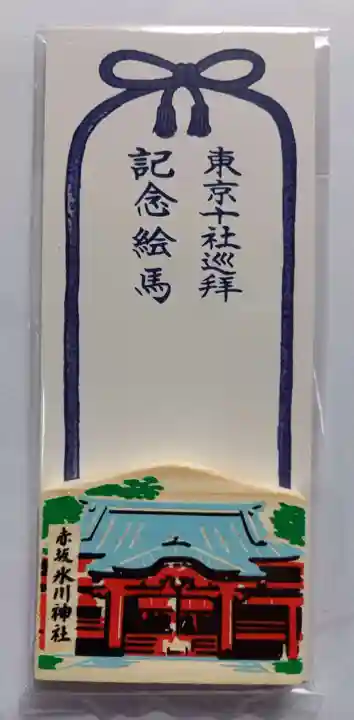 東京十社巡拝
記念絵馬
赤坂氷川神社